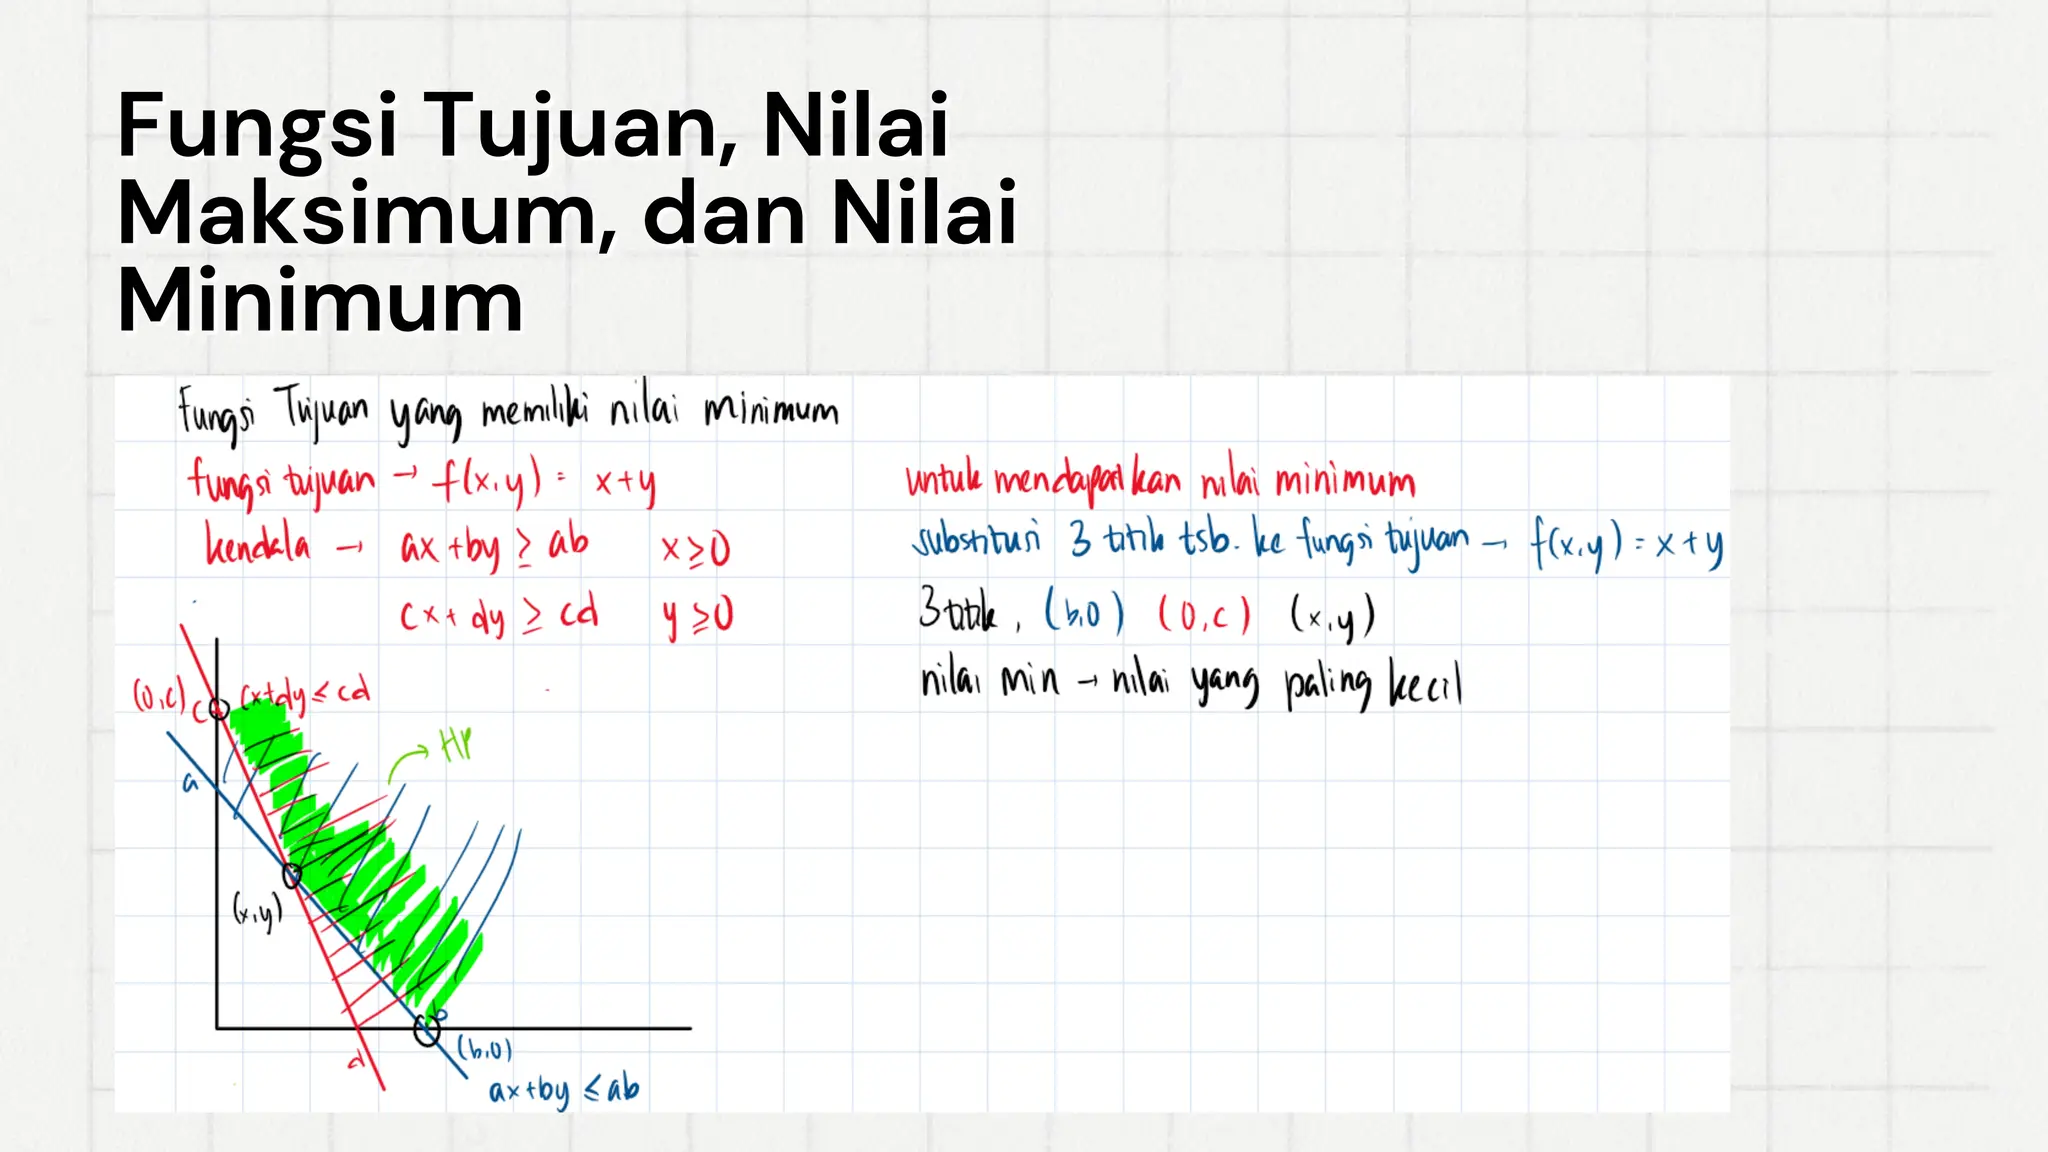 Fungsi Tujuan, Nilai
Maksimum, dan Nilai
Minimum
Fungsi Tujuan yang memiliki nilai minimum
fungsi tujuan → f(x,y) = x+y
kendala → ax+by ≥ ab x≥0
cx+dy ≥ cd y≥0
(0,c) c cx+dy ≤ cd
HP
a
(x,y)
b
d
(b,0)
ax+by ≤ ab
untuk mendapatkan nilai minimum
substitusi 3 titik tsb. ke fungsi tujuan → f(x,y) = x+y
3 titik, (b,0) (0,c) (x,y)
nilai min → nilai yang paling kecil